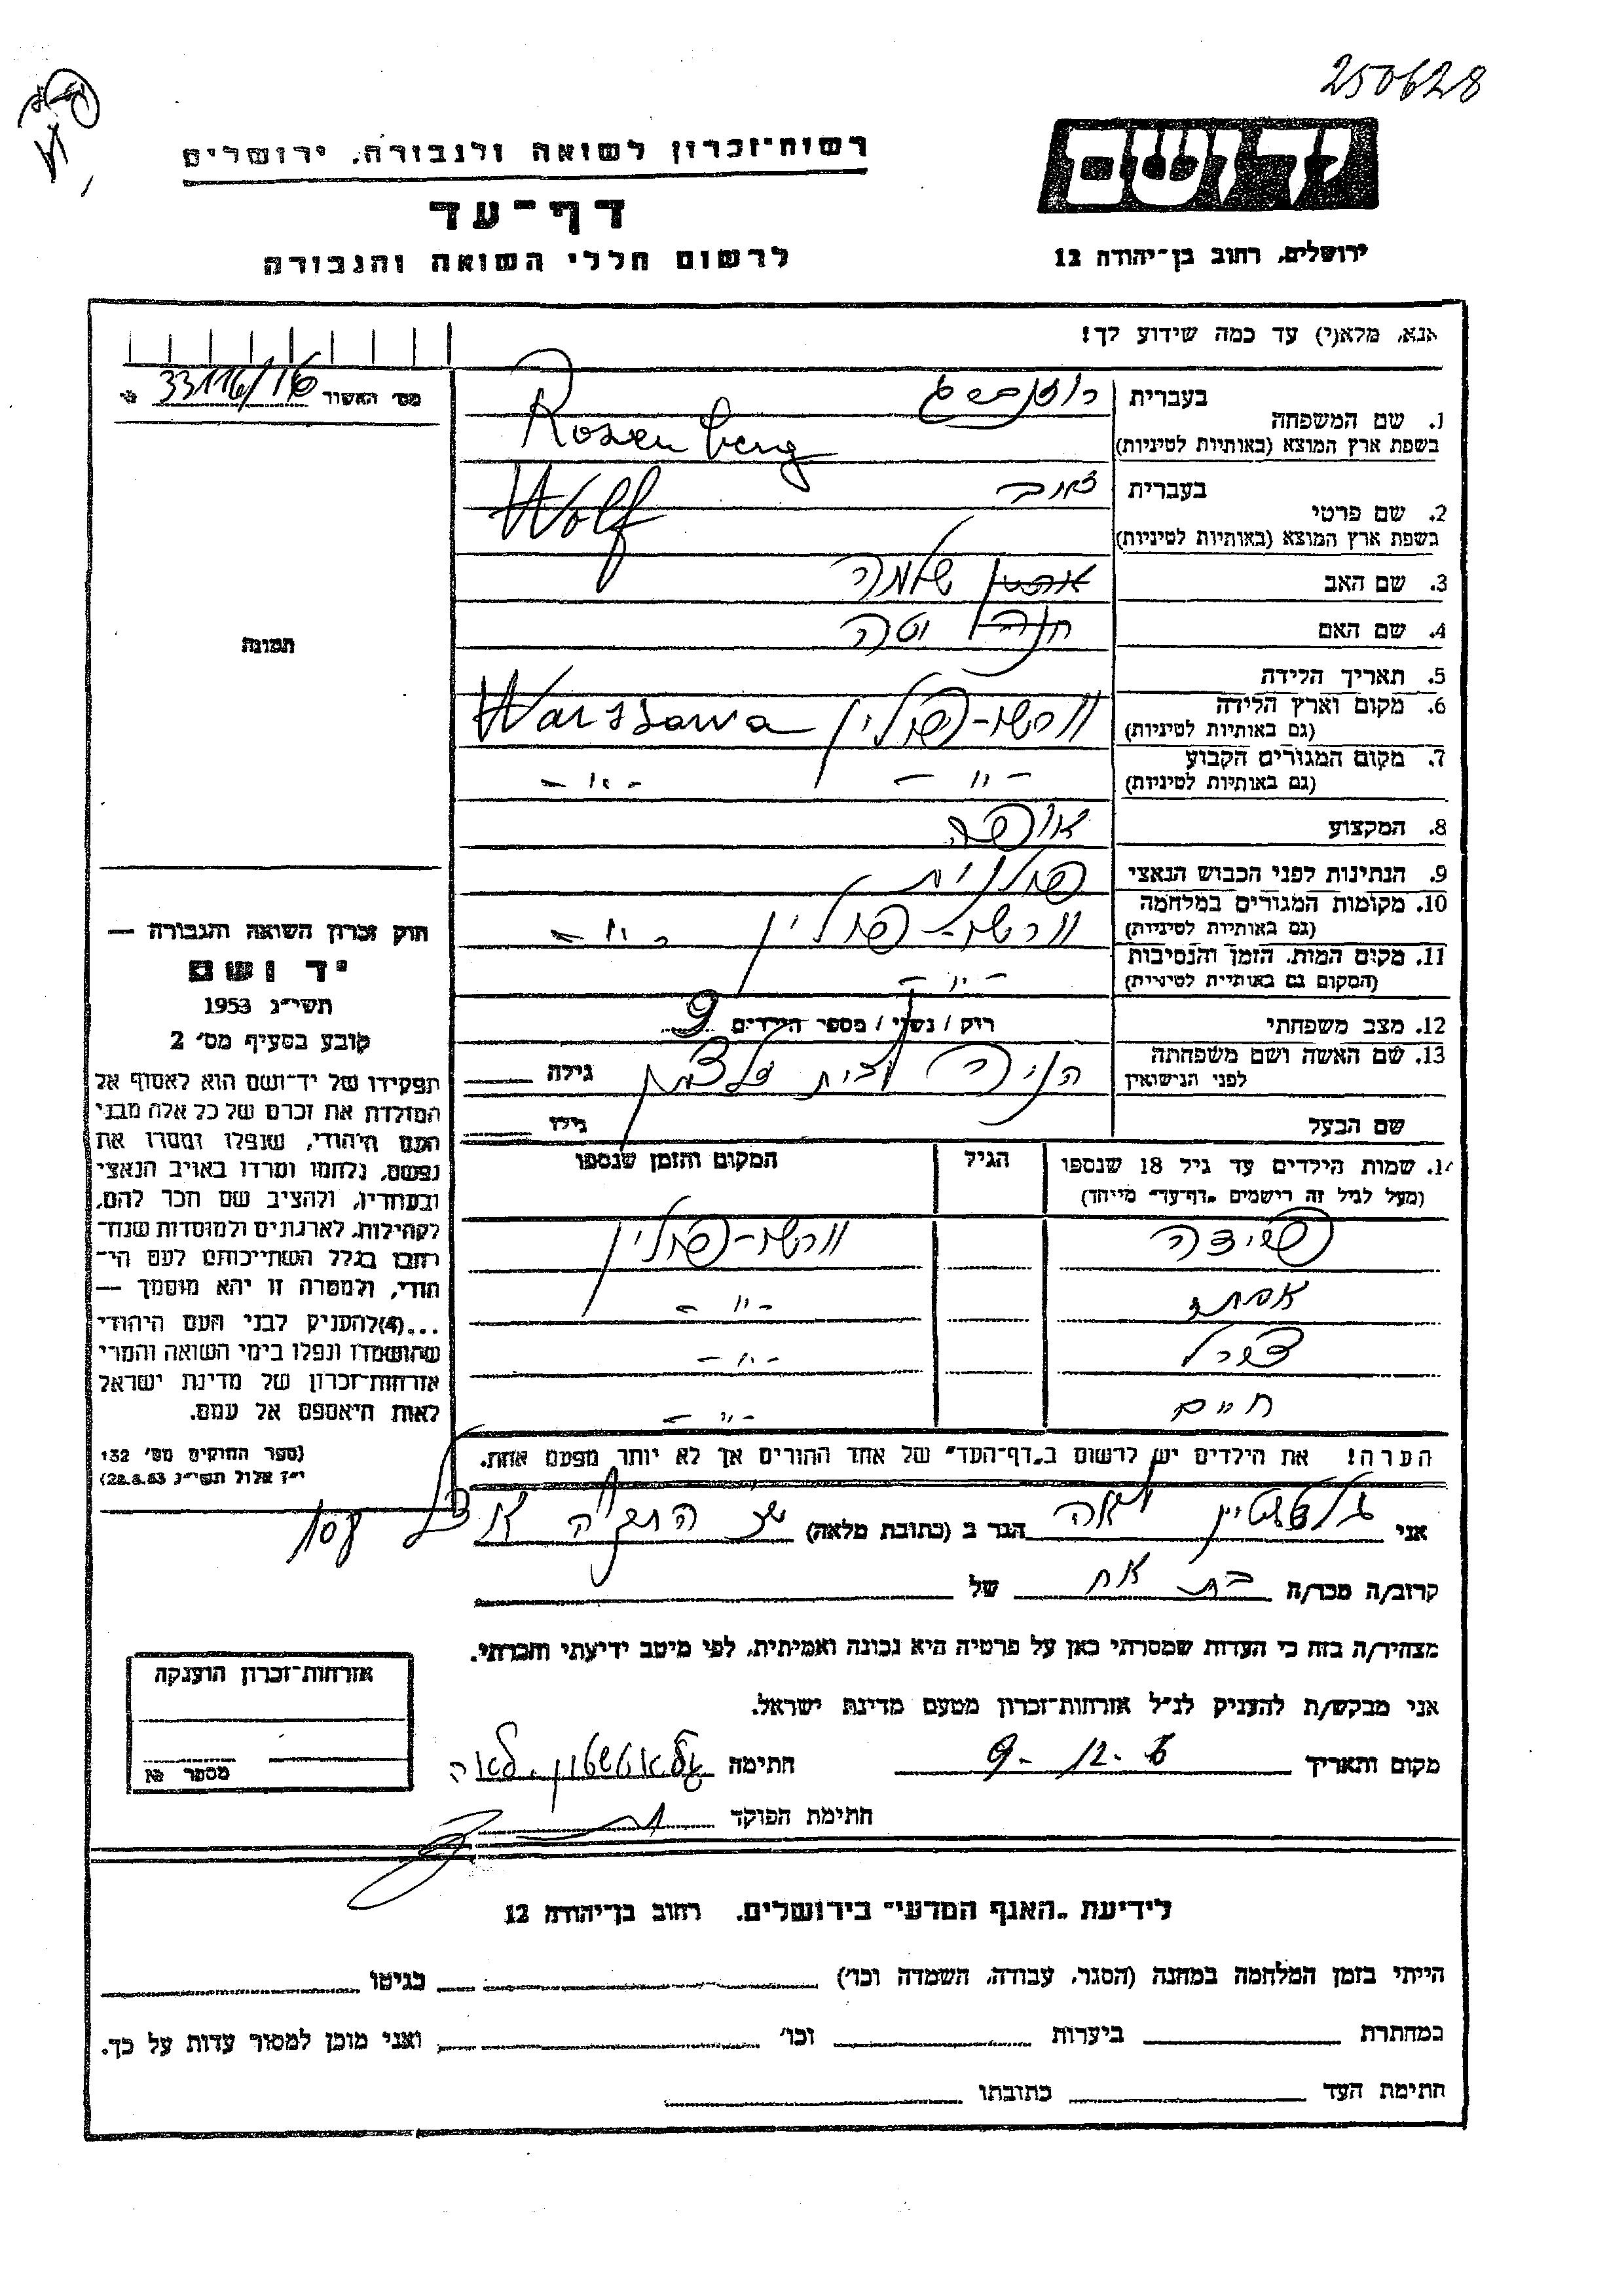 250628
יד ושם
רשות־זכרון לשואה ולגבורה, ירושלים
דף־עד
לרשום חללי השואה והגבורה
ירושלים, רחוב בן־יהודה 12
אנא, מלא(י) עד כמה שידוע לך!
מס׳ האשור
1. שם המשפחה
בעברית רוזנברג
בשפת ארץ המוצא (באותיות לטיניות) Rosenberg
2. שם פרטי
בעברית זאב
בשפת ארץ המוצא (באותיות לטיניות) Wolf
3. שם האב שלמה
4. שם האם חנה
5. תאריך הלידה
6. מקום וארץ הלידה וורשה-פולין Warszawa
(גם באותיות לטיניות)
7. מקום המגורים הקבוע -"- -"-
(גם באותיות לטיניות)
8. המקצוע אופה
9. הנתינות לפני הכבוש הנאצי פולנית
10. מקומות המגורים במלחמה וורשה-פולין -"-
(גם באותיות לטיניות)
11. מקום המות, הזמן והנסיבות -"-
(המקום גם באותיות לטיניות)
12. מצב משפחתי רוק / נשוי / מספר הילדים 9
13. שם האשה ושם משפחתה
לפני הנישואין לבית גילה
שם הבעל גילו
14. שמות הילדים עד גיל 18 שנספו הגיל המקום והזמן שנספו
(מעל לגיל זה רישמים „דף־עד״ מיוחד)
וורשה-פולין
אסתר -"-
-"-
חיים -"-
הערה! את הילדים יש לרשום ב„דף־העד״ של אחד ההורים אך לא יותר מפעם אחת.
תמונה
חוק זכרון השואה והגבורה —
יד ושם
תשי״ג 1953
קובע בסעיף מס׳ 2
תפקידו של יד־ושם הוא לאסוף אל
המולדת את זכרם של כל אלה מבני
העם היהודי, שנפלו ומסרו את
נפשם, נלחמו ומרדו באויב הנאצי
ובעוזריו, ולהציב שם וזכר להם,
לקהילות, לארגונים ולמוסדות שנח־
רבו בגלל השתייכותם לעם הי־
הודי, ולמטרה זו יהא מוסמך —
...(4)להעניק לבני העם היהודי
שהושמדו ונפלו בימי השואה והמרי
אזרחות־זכרון של מדינת ישראל
לאות היאספם אל עמם.
(ספר החוקים מס׳ 132
י״ז אלול תשי״ג 28.8.53)
אני לאה הגר ב (כתובת מלאה)
קרוב/ה מכר/ה בת אח של
מצהיר/ה בזה כי העדות שמסרתי כאן על פרטיה היא נכונה ואמיתית, לפי מיטב ידיעתי והכרתי.
אני מבקש/ת להעניק לנ״ל אזרחות־זכרון מטעם מדינת ישראל.
מקום ותאריך חתימה לאה
חתימת הפוקד
אזרחות־זכרון הוענקה
מספר №
לידיעת „האגף המדעי״ בירושלים, רחוב בן־יהודה 12
הייתי בזמן המלחמה במחנה (הסגר, עבודה, השמדה וכו׳) בגיטו
במחתרת ביערות וכו׳ ואני מוכן למסור עדות על כך.
חתימת העד כתובתו